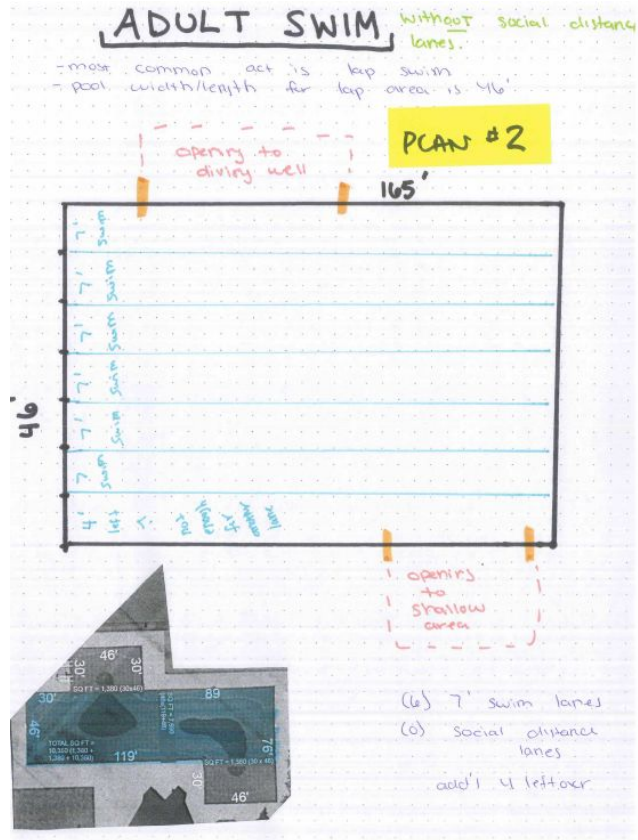 ADULT SWIM
without social distance
lanes.
- most common act is lap swim
- pool width/length for lap area is 46'
PLAN #2
opening to
diving well
165'
46'
7' swim
7' swim
7' swim
7' swim
7' swim
7 swim
4' left
not enough for another lane
opening
to
shallow
area
46'
30'
30'
SQ FT = 1,380 (30x46)
30'
89
46'
76'
TOTAL SQ FT =
119'
SQ FT = 1,380 (30 x 46)
30
46'
(6) 7' swim lanes
(0) social distance
lanes
add'l 4 leftover